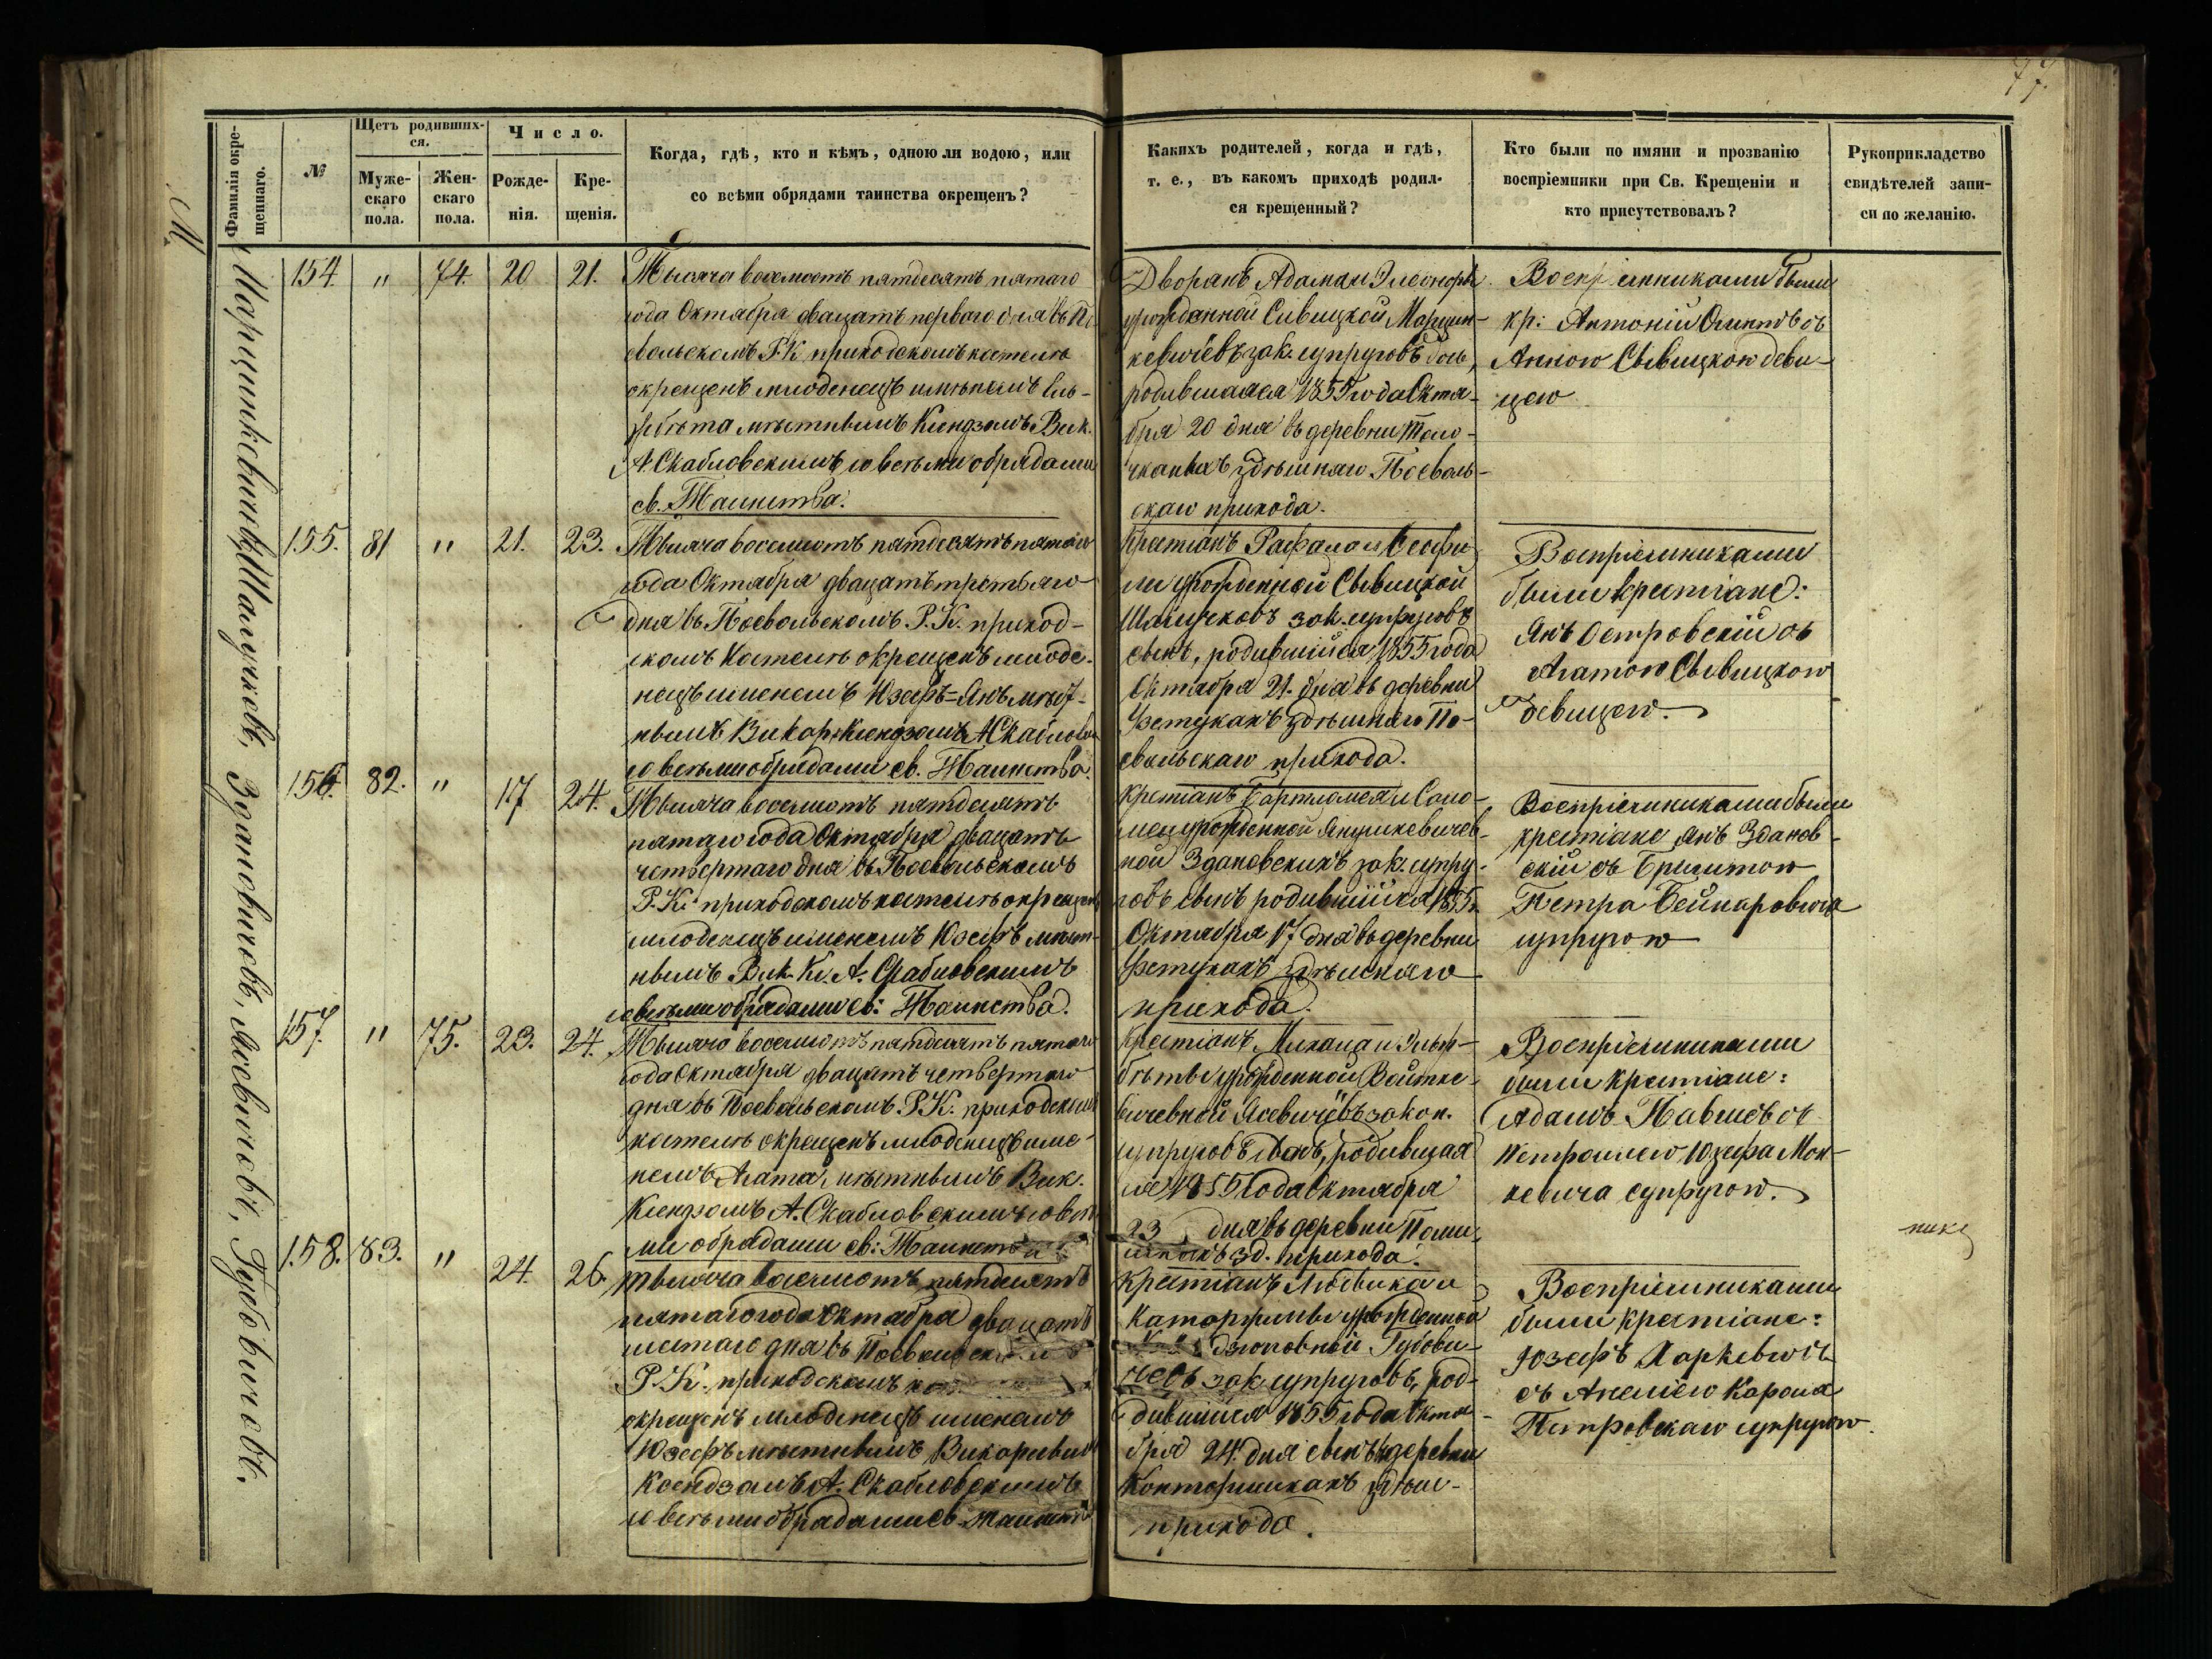 77
Фамилія окре-
щеннаго.
№
Щетъ родивших-
ся.
Муже-
скаго
пола.
Жен-
скаго
пола.
Число.
Рожде-
нія.
Кре-
щенія.
Когда, гдѣ, кто и кѣмъ, одною ли водою, или
со всѣми обрядами таинства окрещенъ?
Какихъ родителей, когда и гдѣ,
т. е., въ какомъ приходѣ родил-
ся крещенный?
Кто были по имяни и прозванію
воспріемники при Св. Крещеніи и
кто присутствовалъ?
Рукоприкладство
свидѣтелей запи-
си по желанію.
М
154. " 74. 20 21.
Тысяча восемсотъ пятдесятъ пятаго
года Октября двацатъ перваго дня въ По
евольскомъ Р.К. приходскомъ костелѣ
окрещенъ младенецъ имянемъ Ель-
жбѣта мѣстнымъ Ксендзомъ Вик.
А. Скабловскимъ со всѣми обрядами
св. Таинства.
Дворянъ Адама и Элеоноры
урожданной Сывицкой Марцин-
кевичёвъ зак. супруговъ дочь,
родившаяся 1855 года Октя-
бря 20 дня въ деревни
здѣшняго Поеволь-
скаго прихода.
Воспріемниками были
кр: Антоній съ
Анною Сывицкою деви-
цею
155. 81 " 21. 23.
Тысяча восемсотъ пятдесятъ пятаго
года Октября двацатъ третьяго
дня въ Поевольскомъ Р.К. приход-
скомъ Костелѣ окрещенъ младе-
нецъ именемъ Юзефъ=Янъ мѣст-
нымъ Викар. Ксендзомъ А. Скаблов
со всѣми обрядами св. Таинства.
Крестіанъ Рафала и Теофи-
ли урожденной Сывицкой
зак. супруговъ
сынъ, родившійся 1855 года
Октября 21. дня въ деревни
Фетукахъ здѣшняго По-
евольскаго прихода.
Воспріемниками
были крестіане:
Янъ Островскій съ
Агатою Сывицкою
девицею.
156. 82. " 17 24.
Тысяча восемсотъ пятдесятъ
пятаго года Октября двацатъ
четвертаго дня въ Поевольскомъ
Р.К. приходскомъ костелѣ окрещенъ
младенецъ именемъ Юзефъ мѣст-
нымъ Вик. Кс. А. Скабловскимъ
со всѣми обрядами св: Таинства.
Крестіанъ Бартломея и Сало-
меи урожденной Янушкевичев-
ной Здановскихъ зак. супру-
говъ сынъ родившійся 1855 г.
Октября 17 дня въ деревни
Фетукахъ здѣшняго
прихода.
Воспріемниками были
крестіане Янъ Зданов-
скій съ Бригитою
Петра Бейнаровича
супругою
157. " 75. 23. 24.
Тысяча восемсотъ пятдесятъ пятаго
года Октября двацатъ четвертаго
дня въ Поевольскомъ Р.К. приходскомъ
костелѣ окрещенъ младенецъ име-
немъ Агата, мѣстнымъ Вик.
Ксендзомъ А. Скабловскимъ со всѣ
ми обрядами св: Таинства
Крестіанъ Михала и Эльж-
бѣты урожденной Войтке-
вичевной Ясевичёвъ закон.
супруговъ дочь, родившая
ся 1855 года Октября
23 дня въ деревни
зд. прихода.
Воспріемниками
были крестіане:
Адамъ съ
Юзефа Мон-
кевича супругою.
158. 83. " 24. 26.
Тысяча восемсотъ пятдесятъ
пятаго года Октября двацатъ
шестаго дня въ Поевольском
Р.К. приходскомъ кос
окрещенъ младенецъ именемъ
Юзефъ мѣстнымъ Викарнымъ
Ксендзомъ А. Скабловскимъ
со всѣми обрядами св. Таинства
Крестіанъ Людвика и
Катаржины урожденной
Губови-
чевъ зак. супруговъ, род-
дившійся 1855 года Октя-
бря 24. дня сынъ въ деревни
здѣш-
прихода.
Воспріемниками
были крестіане:
Юзефъ Харкевичъ
съ Анеліею Кароля
Петровскаго супругою.
Марцинкевичовъ, Здановичовъ, Ясевичовъ, Губовичовъ.